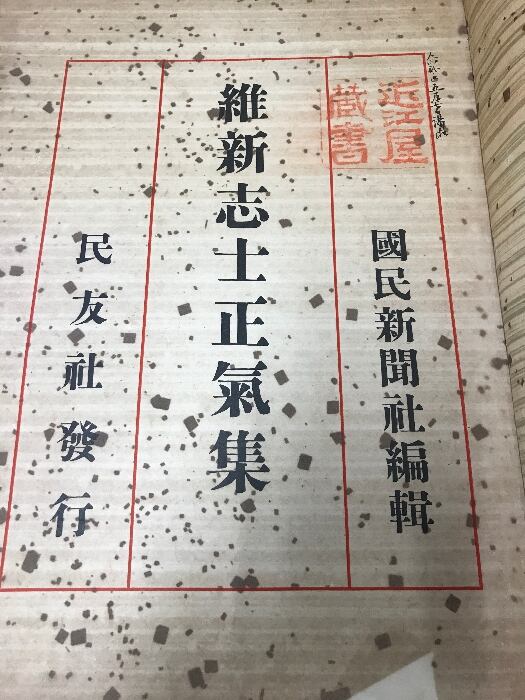 近江屋
蔵書
國民新聞社編輯
維新志士正氣集
民友社發行